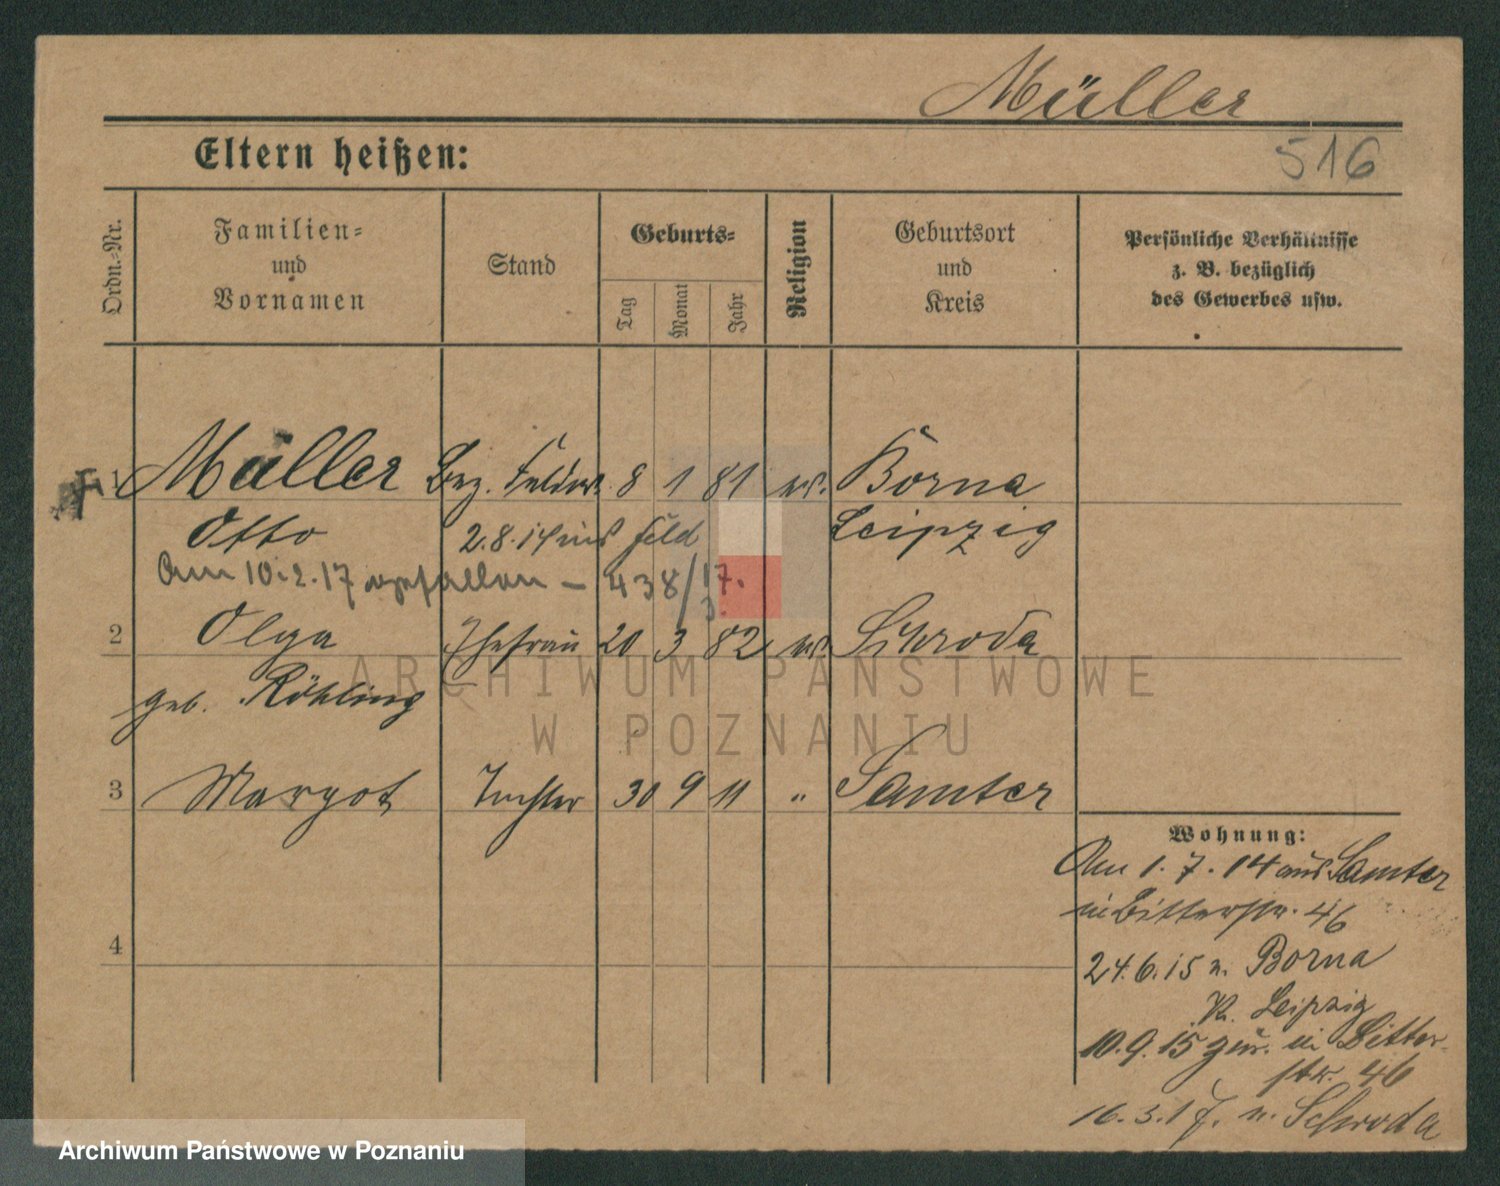 Müller
516
Eltern heißen:
Ordn.-Nr.
Familien-
und
Vornamen
Stand
Geburts-
Tag
Monat
Jahr
Religion
Geburtsort
und
Kreis
Persönliche Verhältnisse
z. B. bezüglich
des Gewerbes usw.
1 Müller Bez. Feldw. 8 1 81 ev. Borna
Otto 2.8.14 ins Feld Leipzig
Am 10.2.17 gefallen – 438/17.
3.
2 Olga Ehefrau 20 3 82 ev. Schroda
geb. Röhling
3 Margot Tochter 30 9 11 " Samter
4
Wohnung:
Am 1.7.14 aus Samter
in Bitterstr. 46
24.6.15 n. Borna
K. Leipzig
10.9.15 zur. in Bitter-
str. 46
16.3.17. n. Schroda
ARCHIWUM PAŃSTWOWE
W POZNANIU
Archiwum Państwowe w Poznaniu